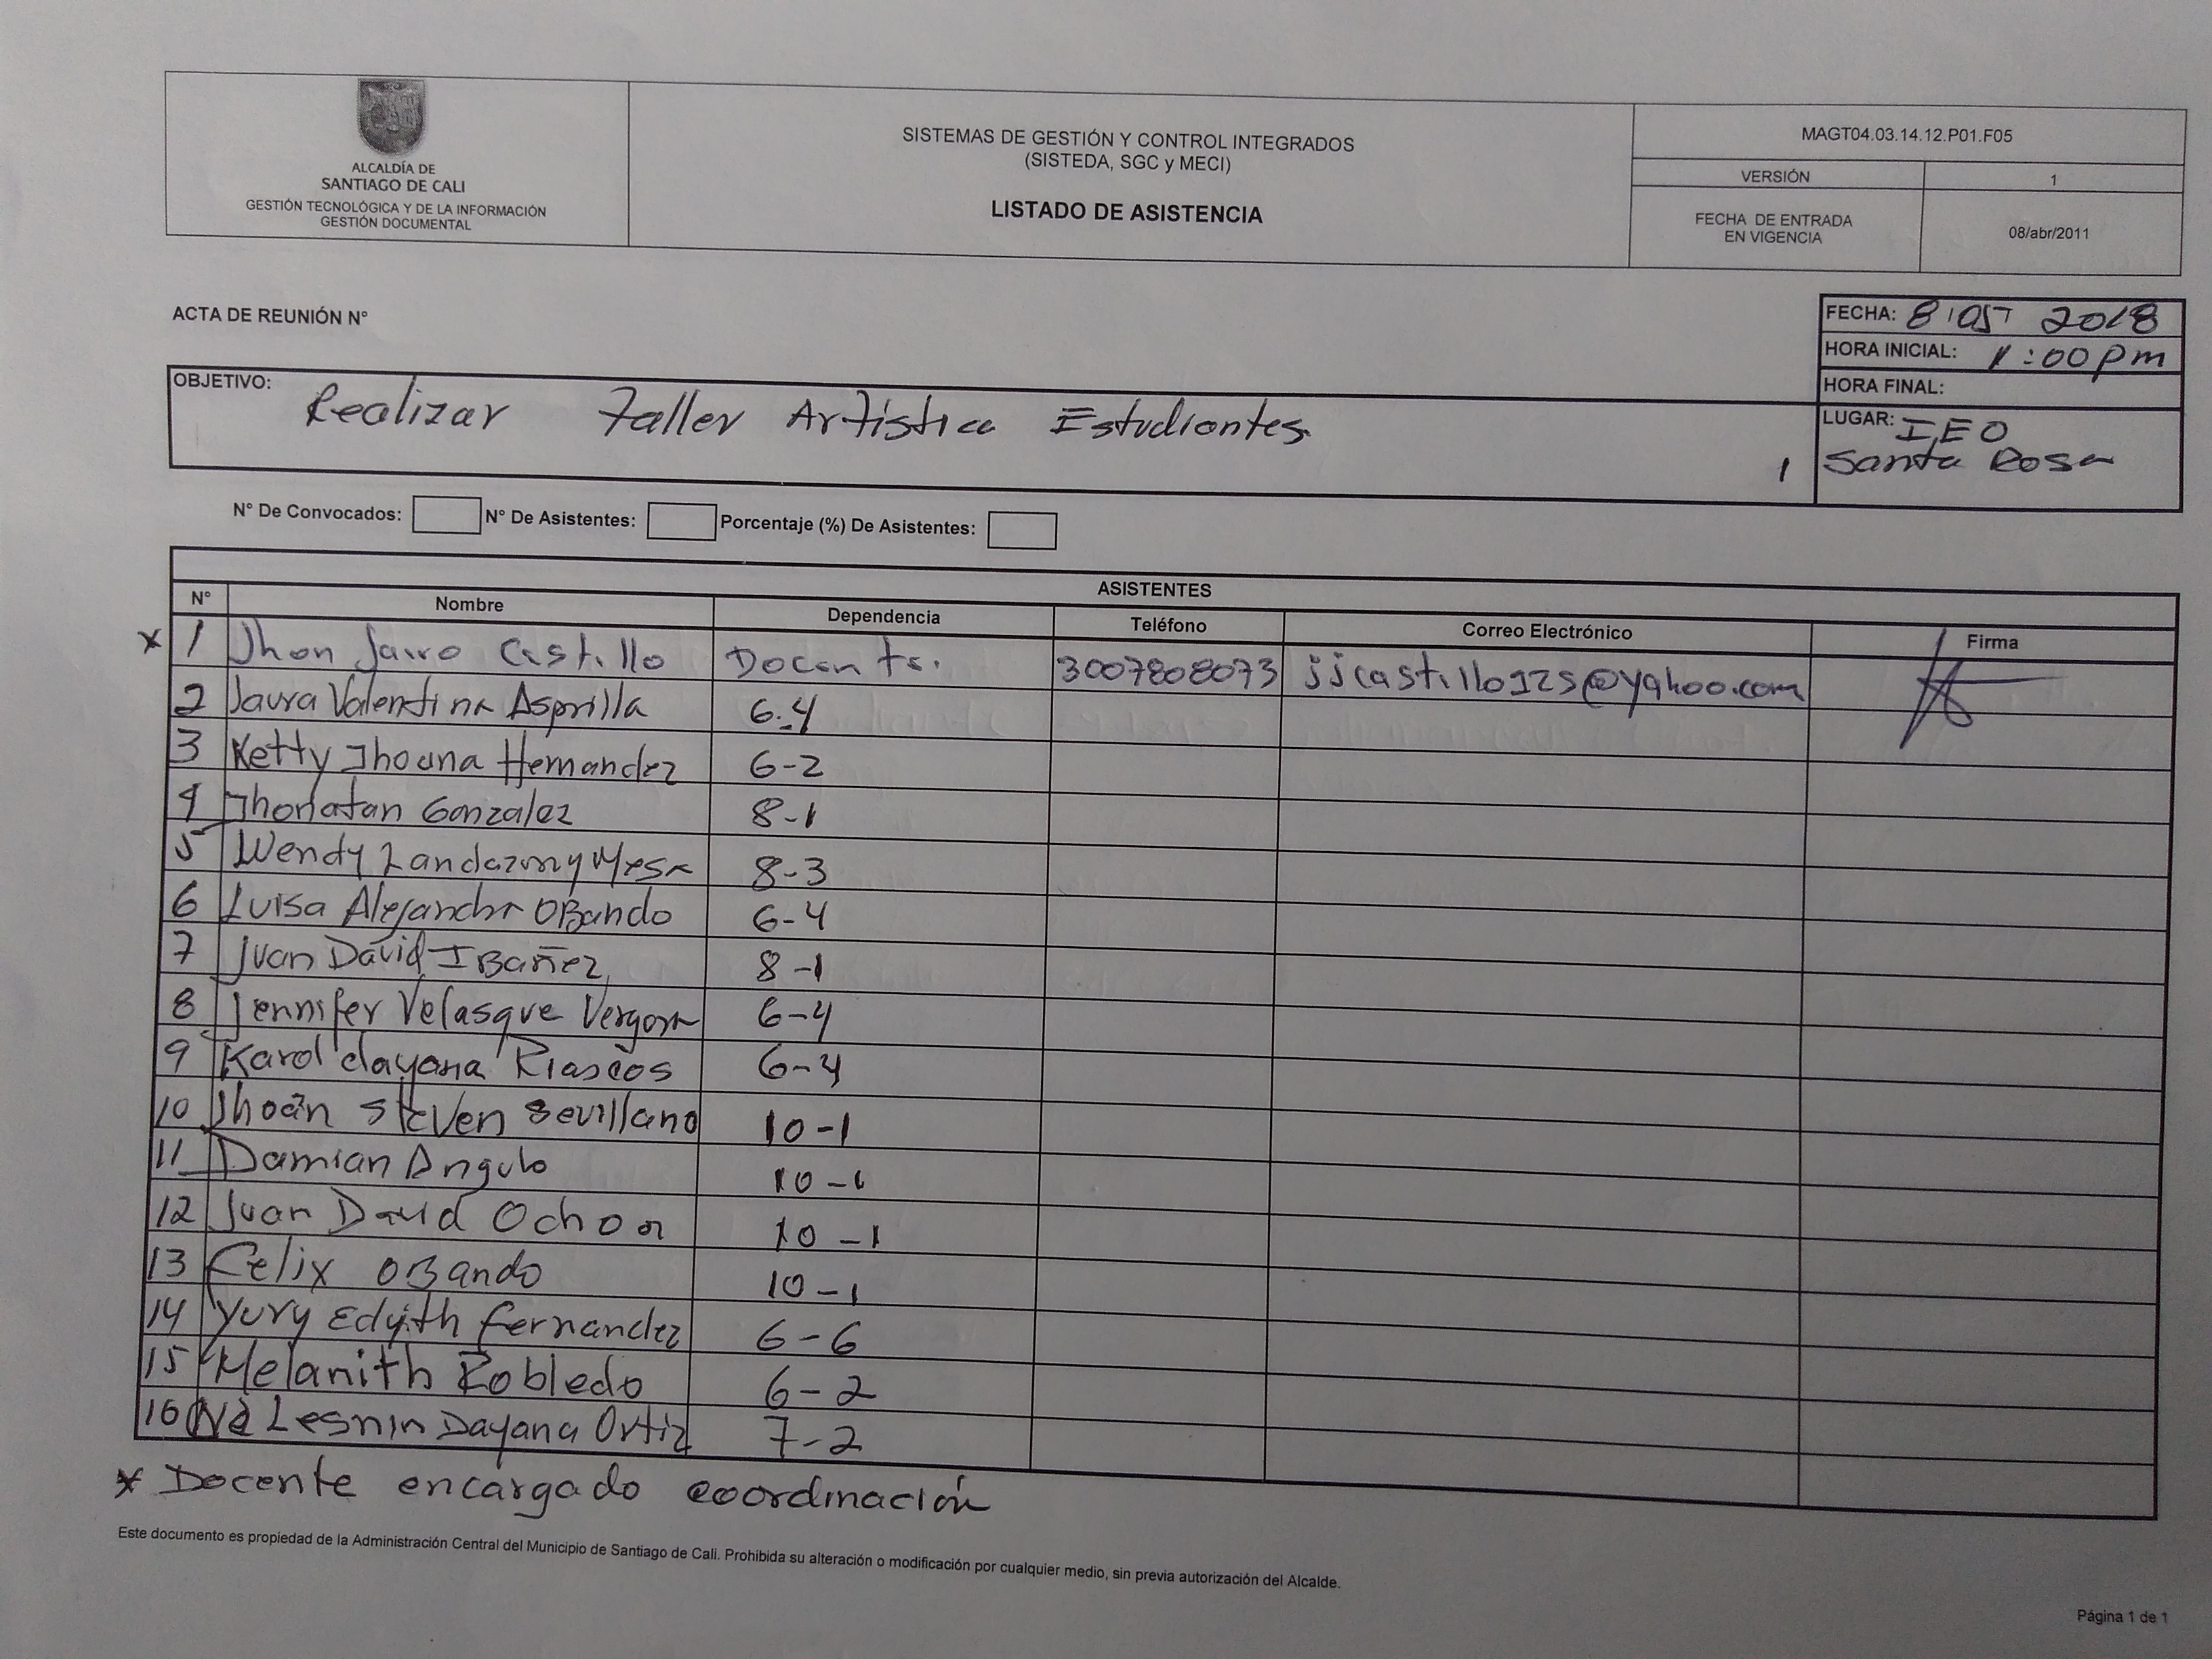 ALCALDÍA DE
SANTIAGO DE CALI
GESTIÓN TECNOLÓGICA Y DE LA INFORMACIÓN
GESTIÓN DOCUMENTAL
SISTEMAS DE GESTIÓN Y CONTROL INTEGRADOS
(SISTEDA, SGC y MECI)
LISTADO DE ASISTENCIA
MAGT04.03.14.12.P01.F05
VERSIÓN 1
FECHA DE ENTRADA
EN VIGENCIA
08/abr/2011
ACTA DE REUNIÓN N°
FECHA: 8 2018
HORA INICIAL: 1:00 pm
HORA FINAL:
LUGAR: IEO
Santa Rosa
OBJETIVO: Realizar Taller Artistica Estudiantes
N° De Convocados: N° De Asistentes: Porcentaje (%) De Asistentes:
ASISTENTES
N° Nombre Dependencia Teléfono Correo Electrónico Firma
* 1 Jhon Jairo Castillo Docente. 3007808073 jjcastillo125@yahoo.com
2 Laura Valentina Asprilla 6-4
3 Ketty Jhoana Hernandez 6-2
4 Jhonatan Gonzalez 8-1
5 Wendy Mesa 8-3
6 Luisa Alejandra OBando 6-4
7 Juan David IBañez 8-1
8 Jennifer Velasque Vergara 6-4
9 Karol dayana Riascos 6-4
10 Jhoan Steven Sevillano 10-1
11 Damian Angulo 10-1
12 Juan David Ochoa 10-1
13 Felix OBando 10-1
14 Yury Edyith fernandez 6-6
15 Melanith Robledo 6-2
16 Lesnin Dayana Ortiz 7-2
* Docente encargado coordinación
Este documento es propiedad de la Administración Central del Municipio de Santiago de Cali. Prohibida su alteración o modificación por cualquier medio, sin previa autorización del Alcalde.
Página 1 de 1